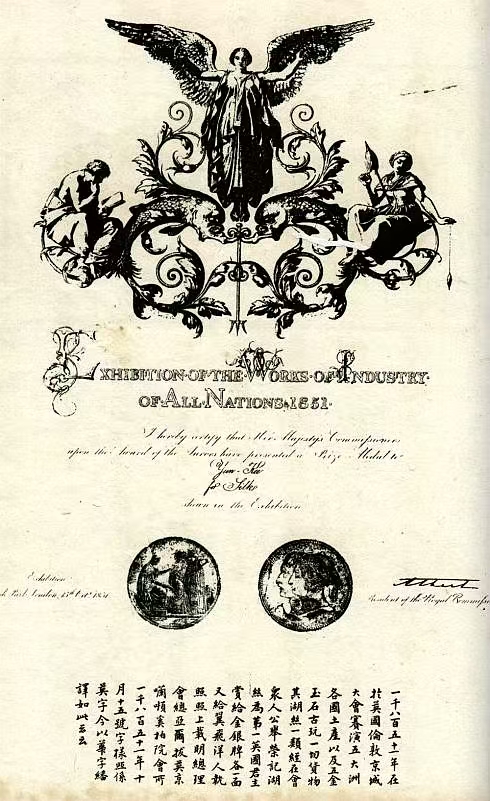 EXHIBITION·OF·THE·WORKS·OF·INDUSTRY·
OF·ALL·NATIONS·1851·
I hereby certify that Her Majesty's Commissioners
upon the Award of the Jurors have presented a Prize Medal to
Yun-Kee
for Silk
shewn in the Exhibition
Exhibition
Park, London, 15th Octr 1851
Albert
President of the Royal Commission
一千八百五十一年在
於英國倫敦京城
大會賽演五大洲
各國土產以及五金
玉石古玩一切貨物
其湖絲一類經在會
衆人公舉榮記湖
絲為第一英國君主
賞給金銀牌各一面
又給翼飛洋人執
照照上載明總理
會總亞爾拔英京
頓柏院會所
一千八百五十一年十
月十五號字樣照係
英字今以華字繙
譯如此云云